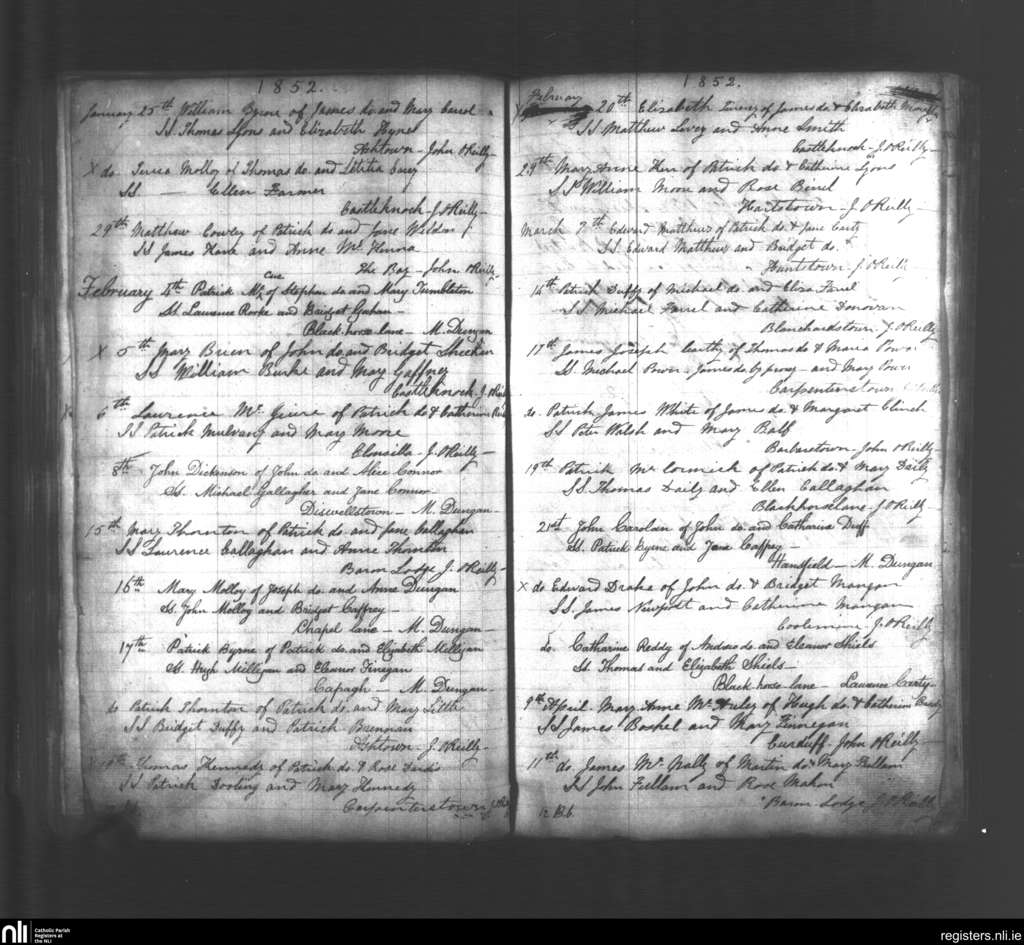 1852.
January 25th William Byrne of James do and Mary Carrol
SS Thomas Lyons and Elizabeth Hynes
Ashtown - John O'Reilly
x do Teresa Molloy of Thomas do and Letitia
SS — Ellen Farmer
Castleknock - J. O'Reilly -
29th Matthew Cowley of Patrick do and Jane Weldon
SS James Kane and Anne McKenna
The Bay - John O'Reilly
February 4th Patrick McCue of Stephen do and Mary Tumbleton
SS. Laurence Rooke and Bridget Graham -
Black-horse lane - M. Dungan
x 5th Mary Brien of John do and Bridget Sheehan
SS William Burke and Mary Gaffney
Castleknock - J. O'Reilly
x 6th Laurence McGuire of Patrick do & Catherine
SS Patrick Mulvany and Mary Moore
Clonsilla - J. O'Reilly -
8th John Dickenson of John do and Alice Connor
SS. Michael Gallagher and Jane Connor -
Diswellstown - M. Dungan -
15th Mary Thornton of Patrick do and Jane Callaghan
SS Laurence Callaghan and Anne Thornton
Baron Lodge J. O'Reilly -
16th Mary Molloy of Joseph do and Anne Dungan
SS. John Molloy and Bridget Caffrey -
Chapel Lane - M. Dungan -
17th Patrick Byrne of Patrick do and Elizabeth Milligan
SS. Hugh Milligan and Eleanor Finegan
Capagh - M. Dungan -
do Patrick Thornton of Patrick do and Mary Little
SS Bridget Duffy and Patrick Brennan
Ashtown - J. O'Reilly -
Thomas Kennedy of Patrick do & Rose
SS Patrick Dooling and Mary Kennedy
Carpenterstown
1852.
February 20th Elizabeth of James do & Elizabeth
SS Matthew Levey and Anne Smith
Castleknock - J. O'Reilly -
29th Mary Anne Kerr of Patrick do & Catherine Lyons
SS William Moore and Rose
Hartstown - J. O'Reilly -
March 7th Edward Matthews of Patrick do & Jane
SS. Edward Matthew and Bridget do.
Huntstown - J. O'Reilly
14th Patrick Duffy of Michael do and Eliza Farrel
SS Michael Farrel and Catherine Donovan
Blanchardstown - J. O'Reilly
17th James Joseph Carthy of Thomas do & Maria Power
SS. Michael Power - James do by proxy - and Mary Power
Carpenterstown
do. Patrick James White of James do & Margaret Clinch
SS Peter Walsh and Mary Balf
Barberstown - John O'Reilly -
19th Patrick McCormick of Patrick do & Mary Daily
SS Thomas Daily and Ellen Callaghan
Blackhorselane - J. O'Reilly -
21st John Carolan of John do and Catharine Duff
SS. Patrick Byrne and Jane Caffrey -
Hansfield - M. Dungan
x do Edward Drake of John do & Bridget Mangan
SS. James Newport and Catherine Mangan
Coolmine J. O'Reilly
do. Catharine Reddy of Andrew do and Eleanor Shiels
SS. Thomas and Elizabeth Shiels -
Black horse lane -
9th April Mary Anne of Hugh do & Catherine
SS James and Mary Finnegan
Curduff - John O'Reilly -
11th do James McNally of Martin do & Mary Fullam
SS John Fullam and Rose Mahon
Baron Lodge J. O'Reilly
12 Bb.
nli
Catholic Parish
Registers at
the NLI
registers.nli.ie